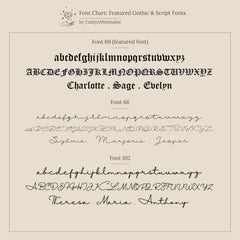 Font Chart: Featured Gothic & Script Fonts
by CaitlynMinimalist
Font 69 (featured font)
abcdefghijklmnopqrstuvwxyz
ABCDEFGHIJKLMNOPQRSTUVWXYZ
Charlotte . Sage . Evelyn
Font 66
abcdefghijklmnopqrstuvwxyz
ABCDEFGHIJKLMNOPQRSTUVWXYZ
Sylvie Marjorie Jasper
Font 102
abcdefghijklmnopqrstuvwxyz
ABCDEFGHIJKLMNOPQRSTUVWXYZ
Theresa . Maria . Anthony